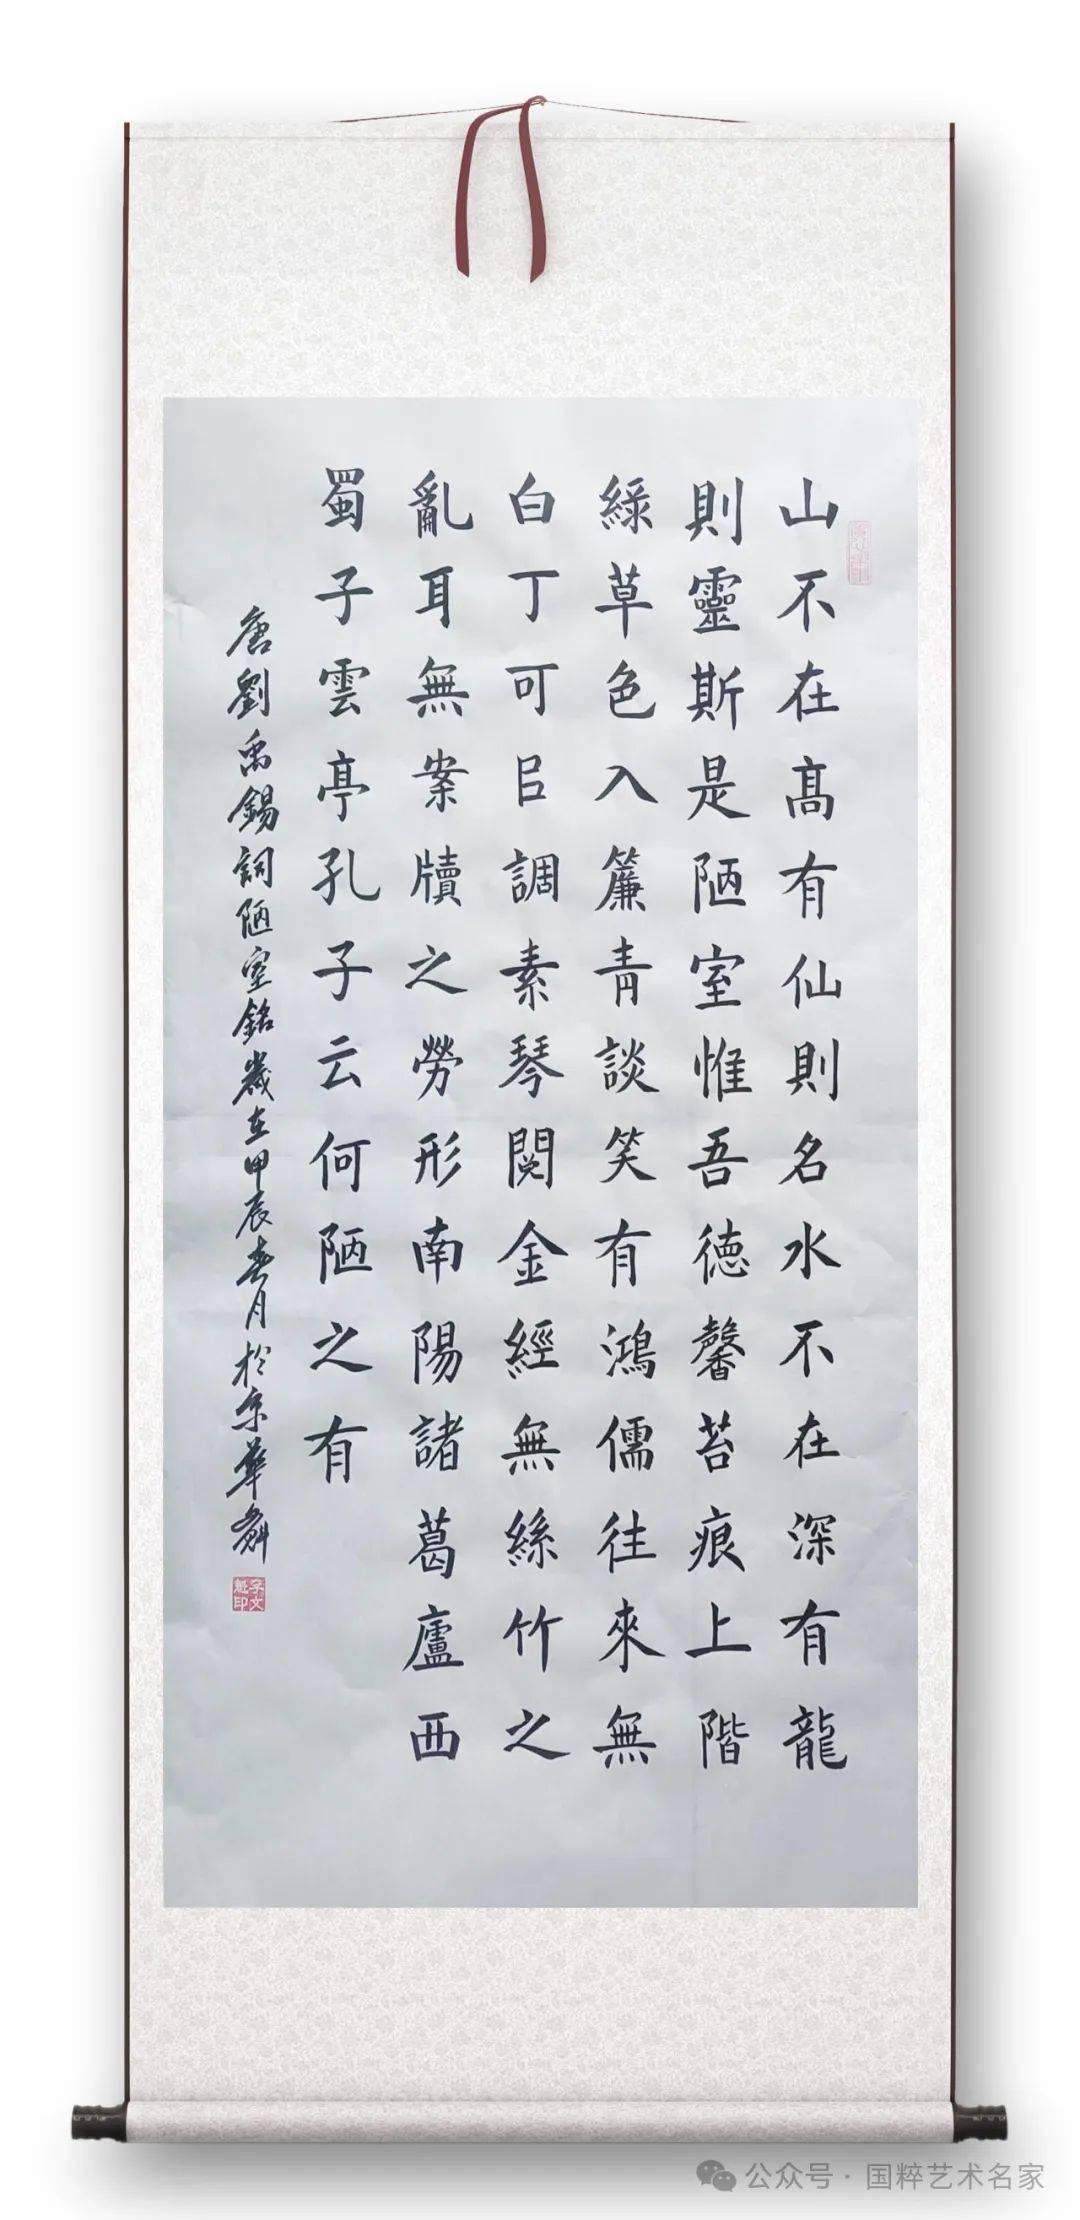 山不在髙有仙則名水不在深有龍
則靈斯是陋室惟吾徳馨苔痕上階
綠草色入簾青談笑有鴻儒往來無
白丁可㠯調素琴閱金經無絲竹之
亂耳無案牘之勞形南陽諸葛廬西
蜀子雲亭孔子云何陋之有
唐劉禹錫詞陋室銘歲在甲辰春月於京華
公众号 · 国粹艺术名家